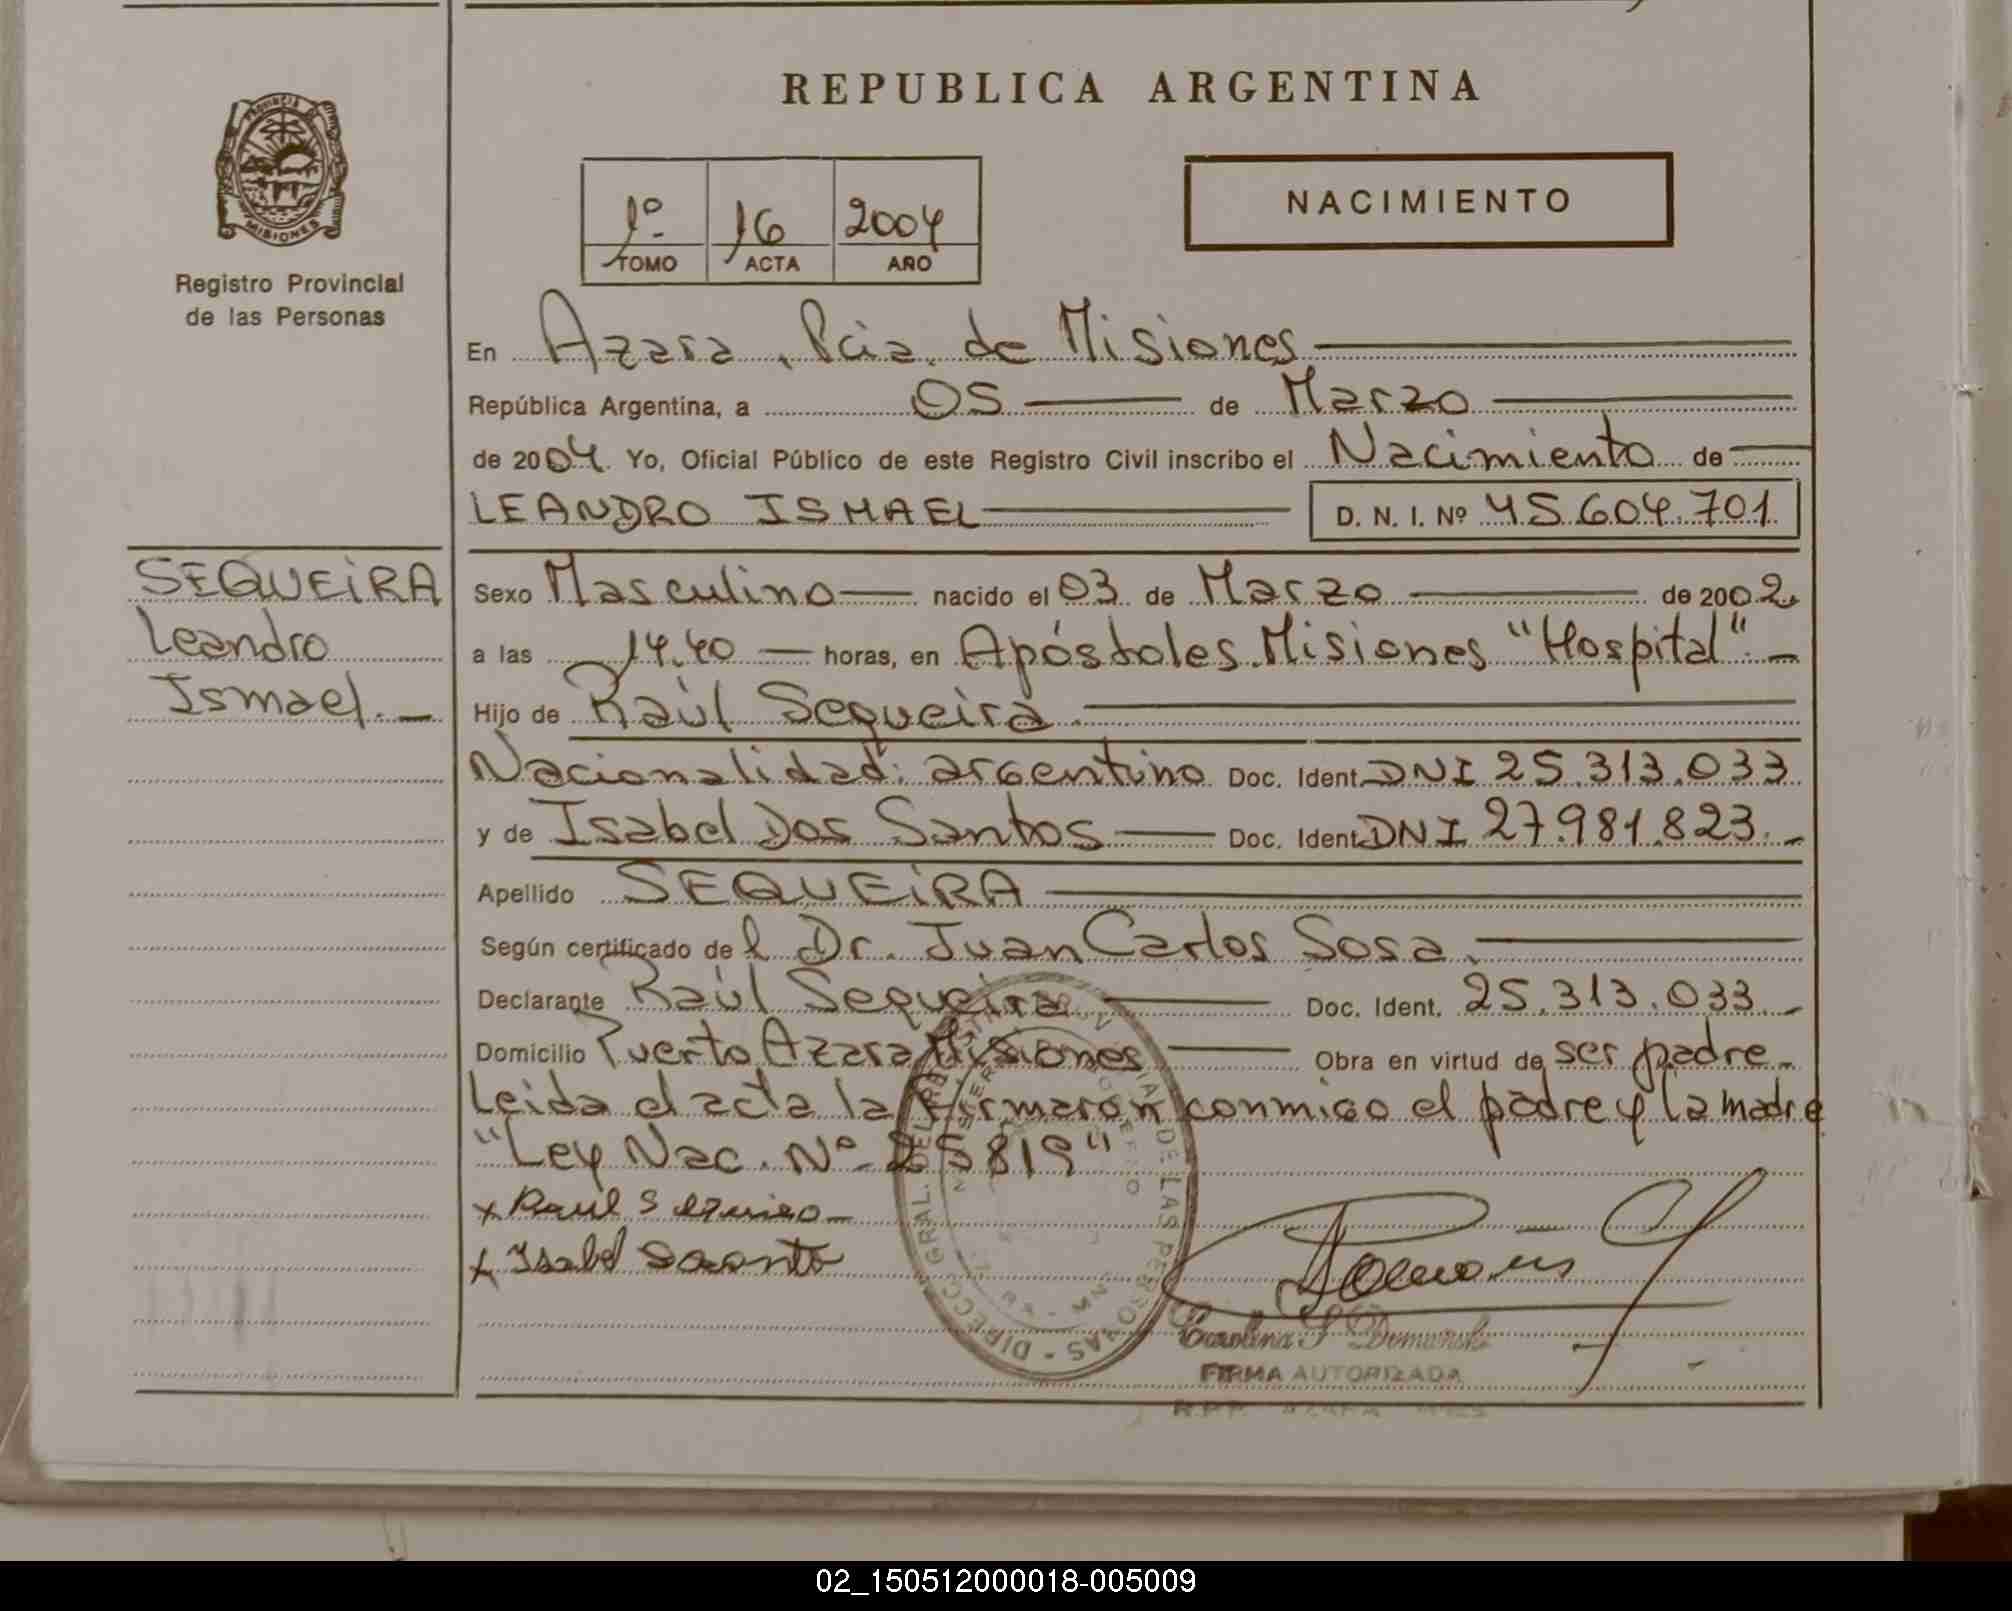 REPUBLICA ARGENTINA
PROVINCIA DE
MISIONES
Registro Provincial
de las Personas
1º 16 2004
TOMO ACTA AÑO
NACIMIENTO
En Azara, Pcia. de Misiones
República Argentina, a 05 de Marzo
de 2004. Yo, Oficial Público de este Registro Civil inscribo el Nacimiento de
LEANDRO ISMAEL D. N. I. Nº 45.604.701
SEQUEIRA
Leandro
Ismael.
Sexo Masculino nacido el 03 de Marzo de 2002
a las 14,40 horas, en Apóstoles.Misiones "Hospital".
Hijo de Raúl Sequeira.
Nacionalidad: argentino Doc. Ident. DNI 25.313.033
y de Isabel Dos Santos Doc. Ident. DNI 27.981.823.
Apellido SEQUEIRA
Según certificado del Dr. Juan Carlos Sosa.
Declarante Raúl Sequeira Doc. Ident. 25.313.033
Domicilio Puerto Azara Misiones Obra en virtud de ser padre
Leida el acta la firmaron conmigo el padre y la madre
"Ley Nac. Nº 25819"
x Raul
x Isabel
DIRECC. GRAL. DEL DE LAS PERSONAS
Carolina S Domanski
FIRMA AUTORIZADA
02_150512000018-005009